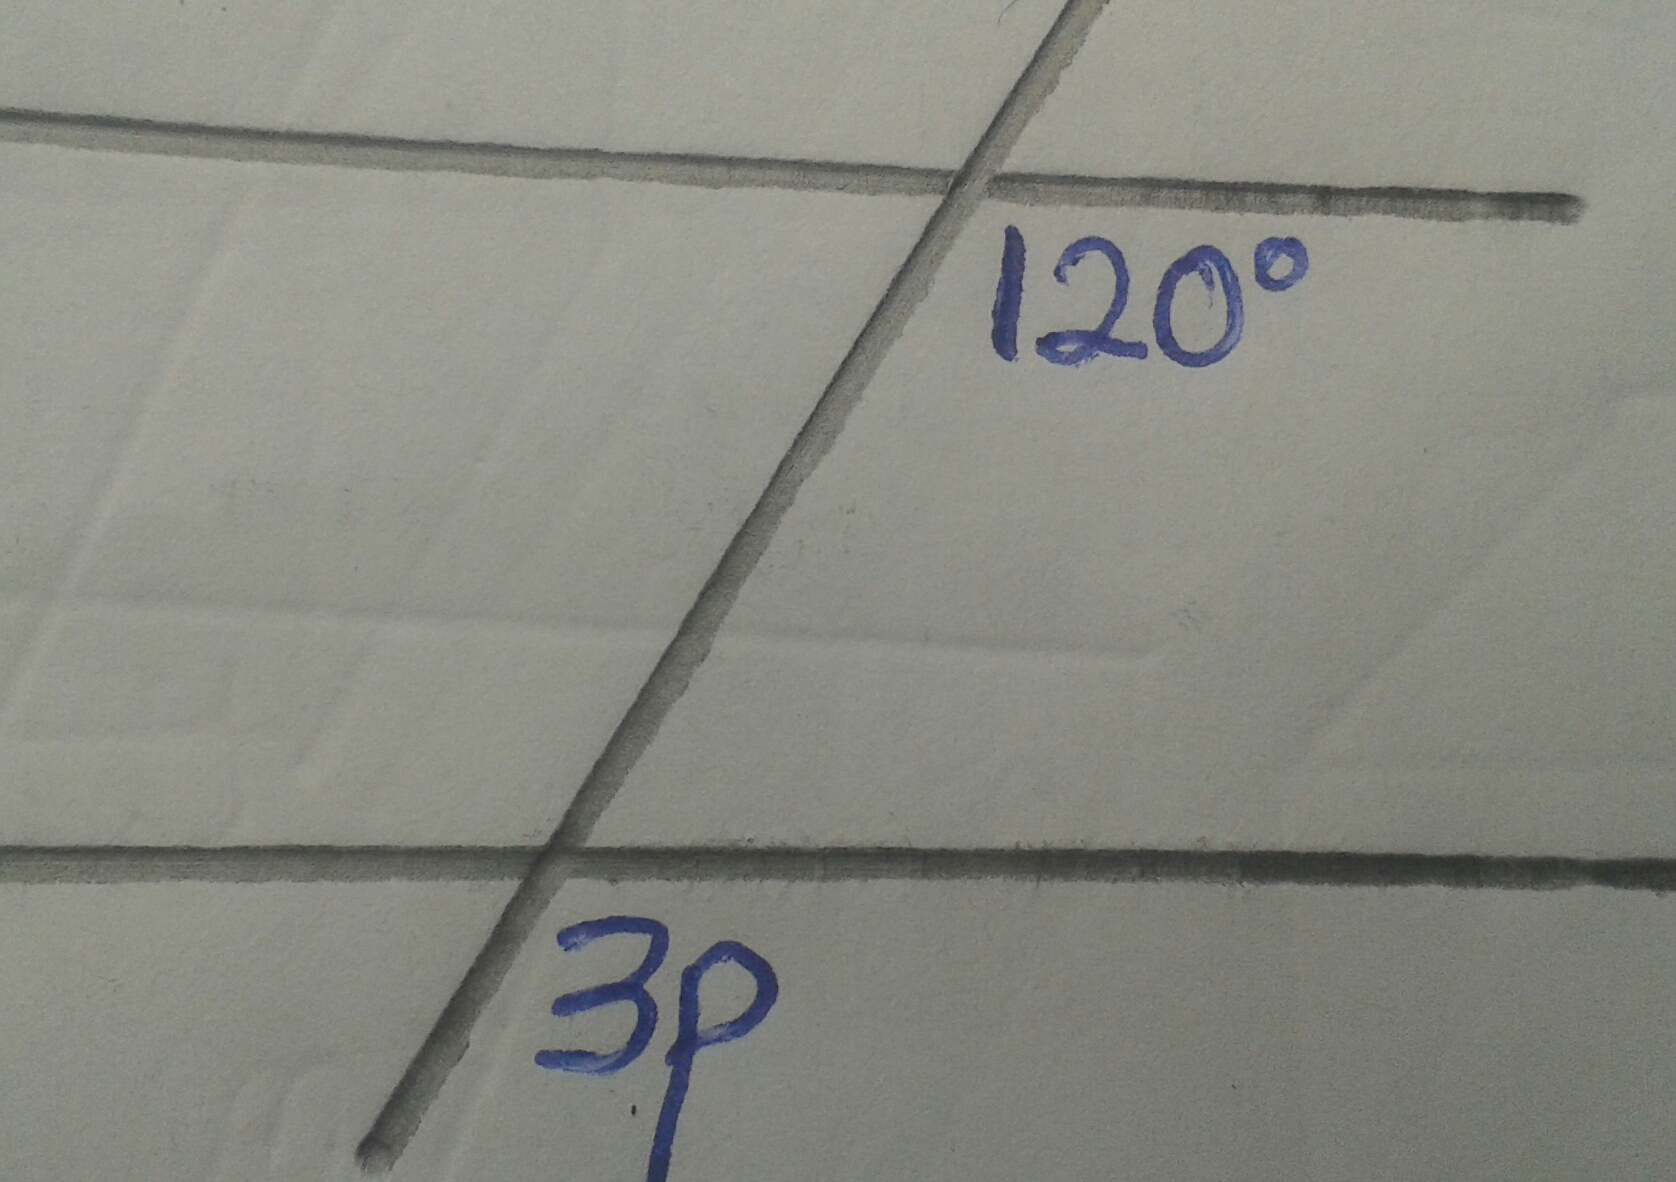 120°
3p